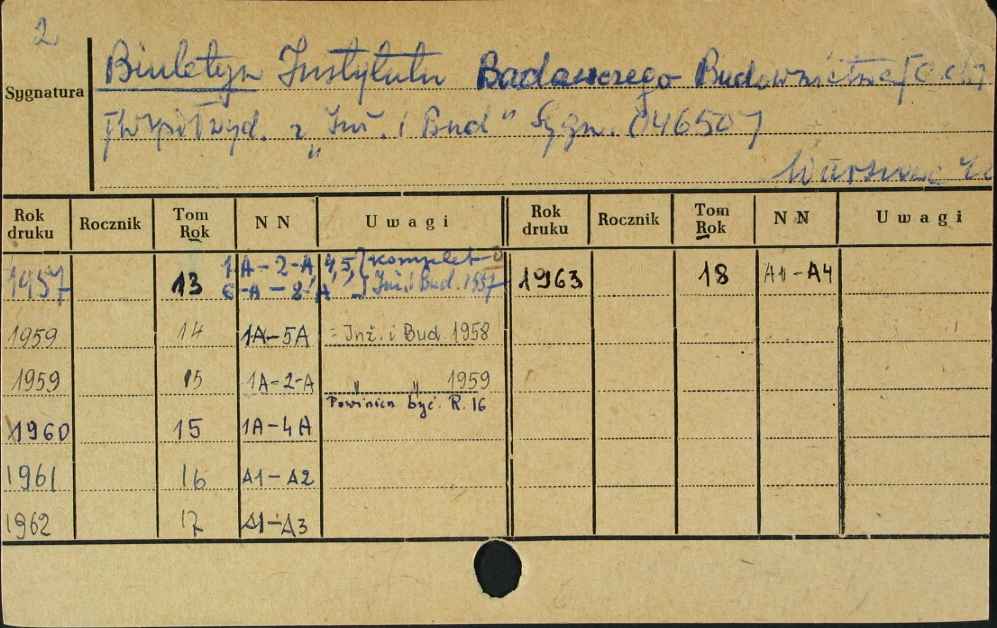 2
Sygnatura
Biuletyn Instytutu Badawczego Budownictwa
wyd. z „Inż. i Bud" Sygn. 046507
Warszawa
Rok druku Rocznik Tom Rok NN Uwagi Rok druku Rocznik Tom Rok NN Uwagi
1957 13 1A-2-A, 4,5, 6-A-8-A komplet Inż. i Bud. 1957 1963 18 A1-A4
1959 14 1A-5A = Inż. i Bud. 1958
1959 15 1A-2-A „ „ 1959
Powinien być R. 16
1960 15 1A-4A
1961 16 A1-A2
1962 17 A1-A3